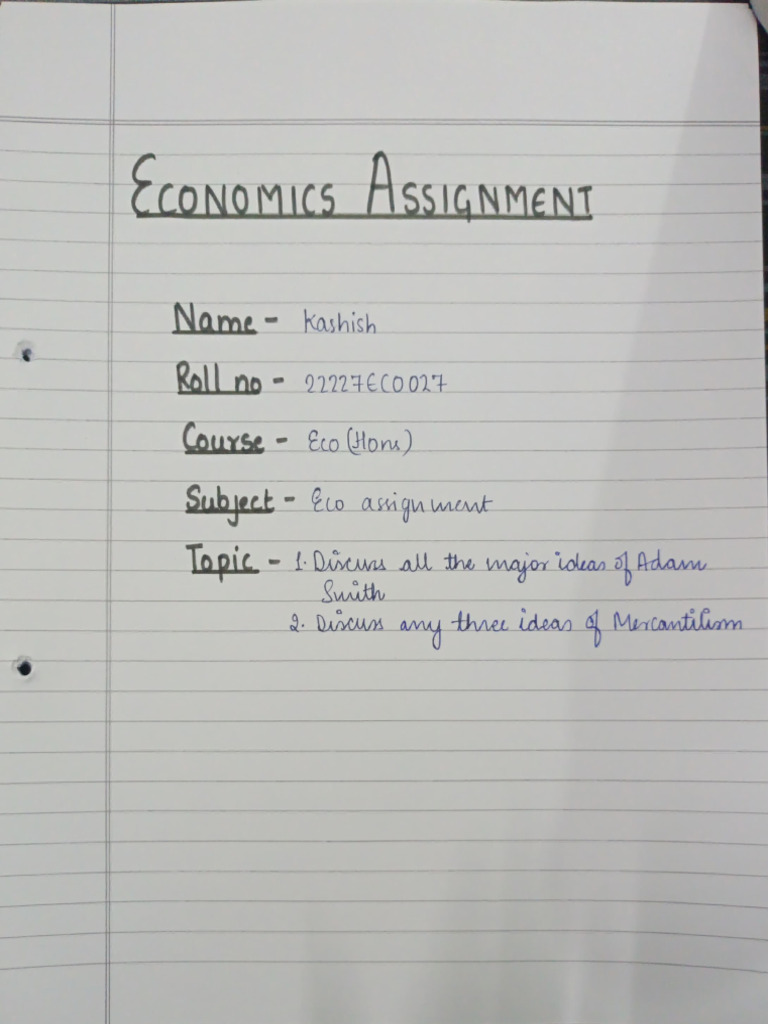 ECONOMICS ASSIGNMENT
Name - Kashish
Roll no - 22227ECO027
Course - Eco (Hons)
Subject - Eco assignment
Topic - 1. Discuss all the major ideas of Adam
Smith
2. Discuss any three ideas of Mercantilism